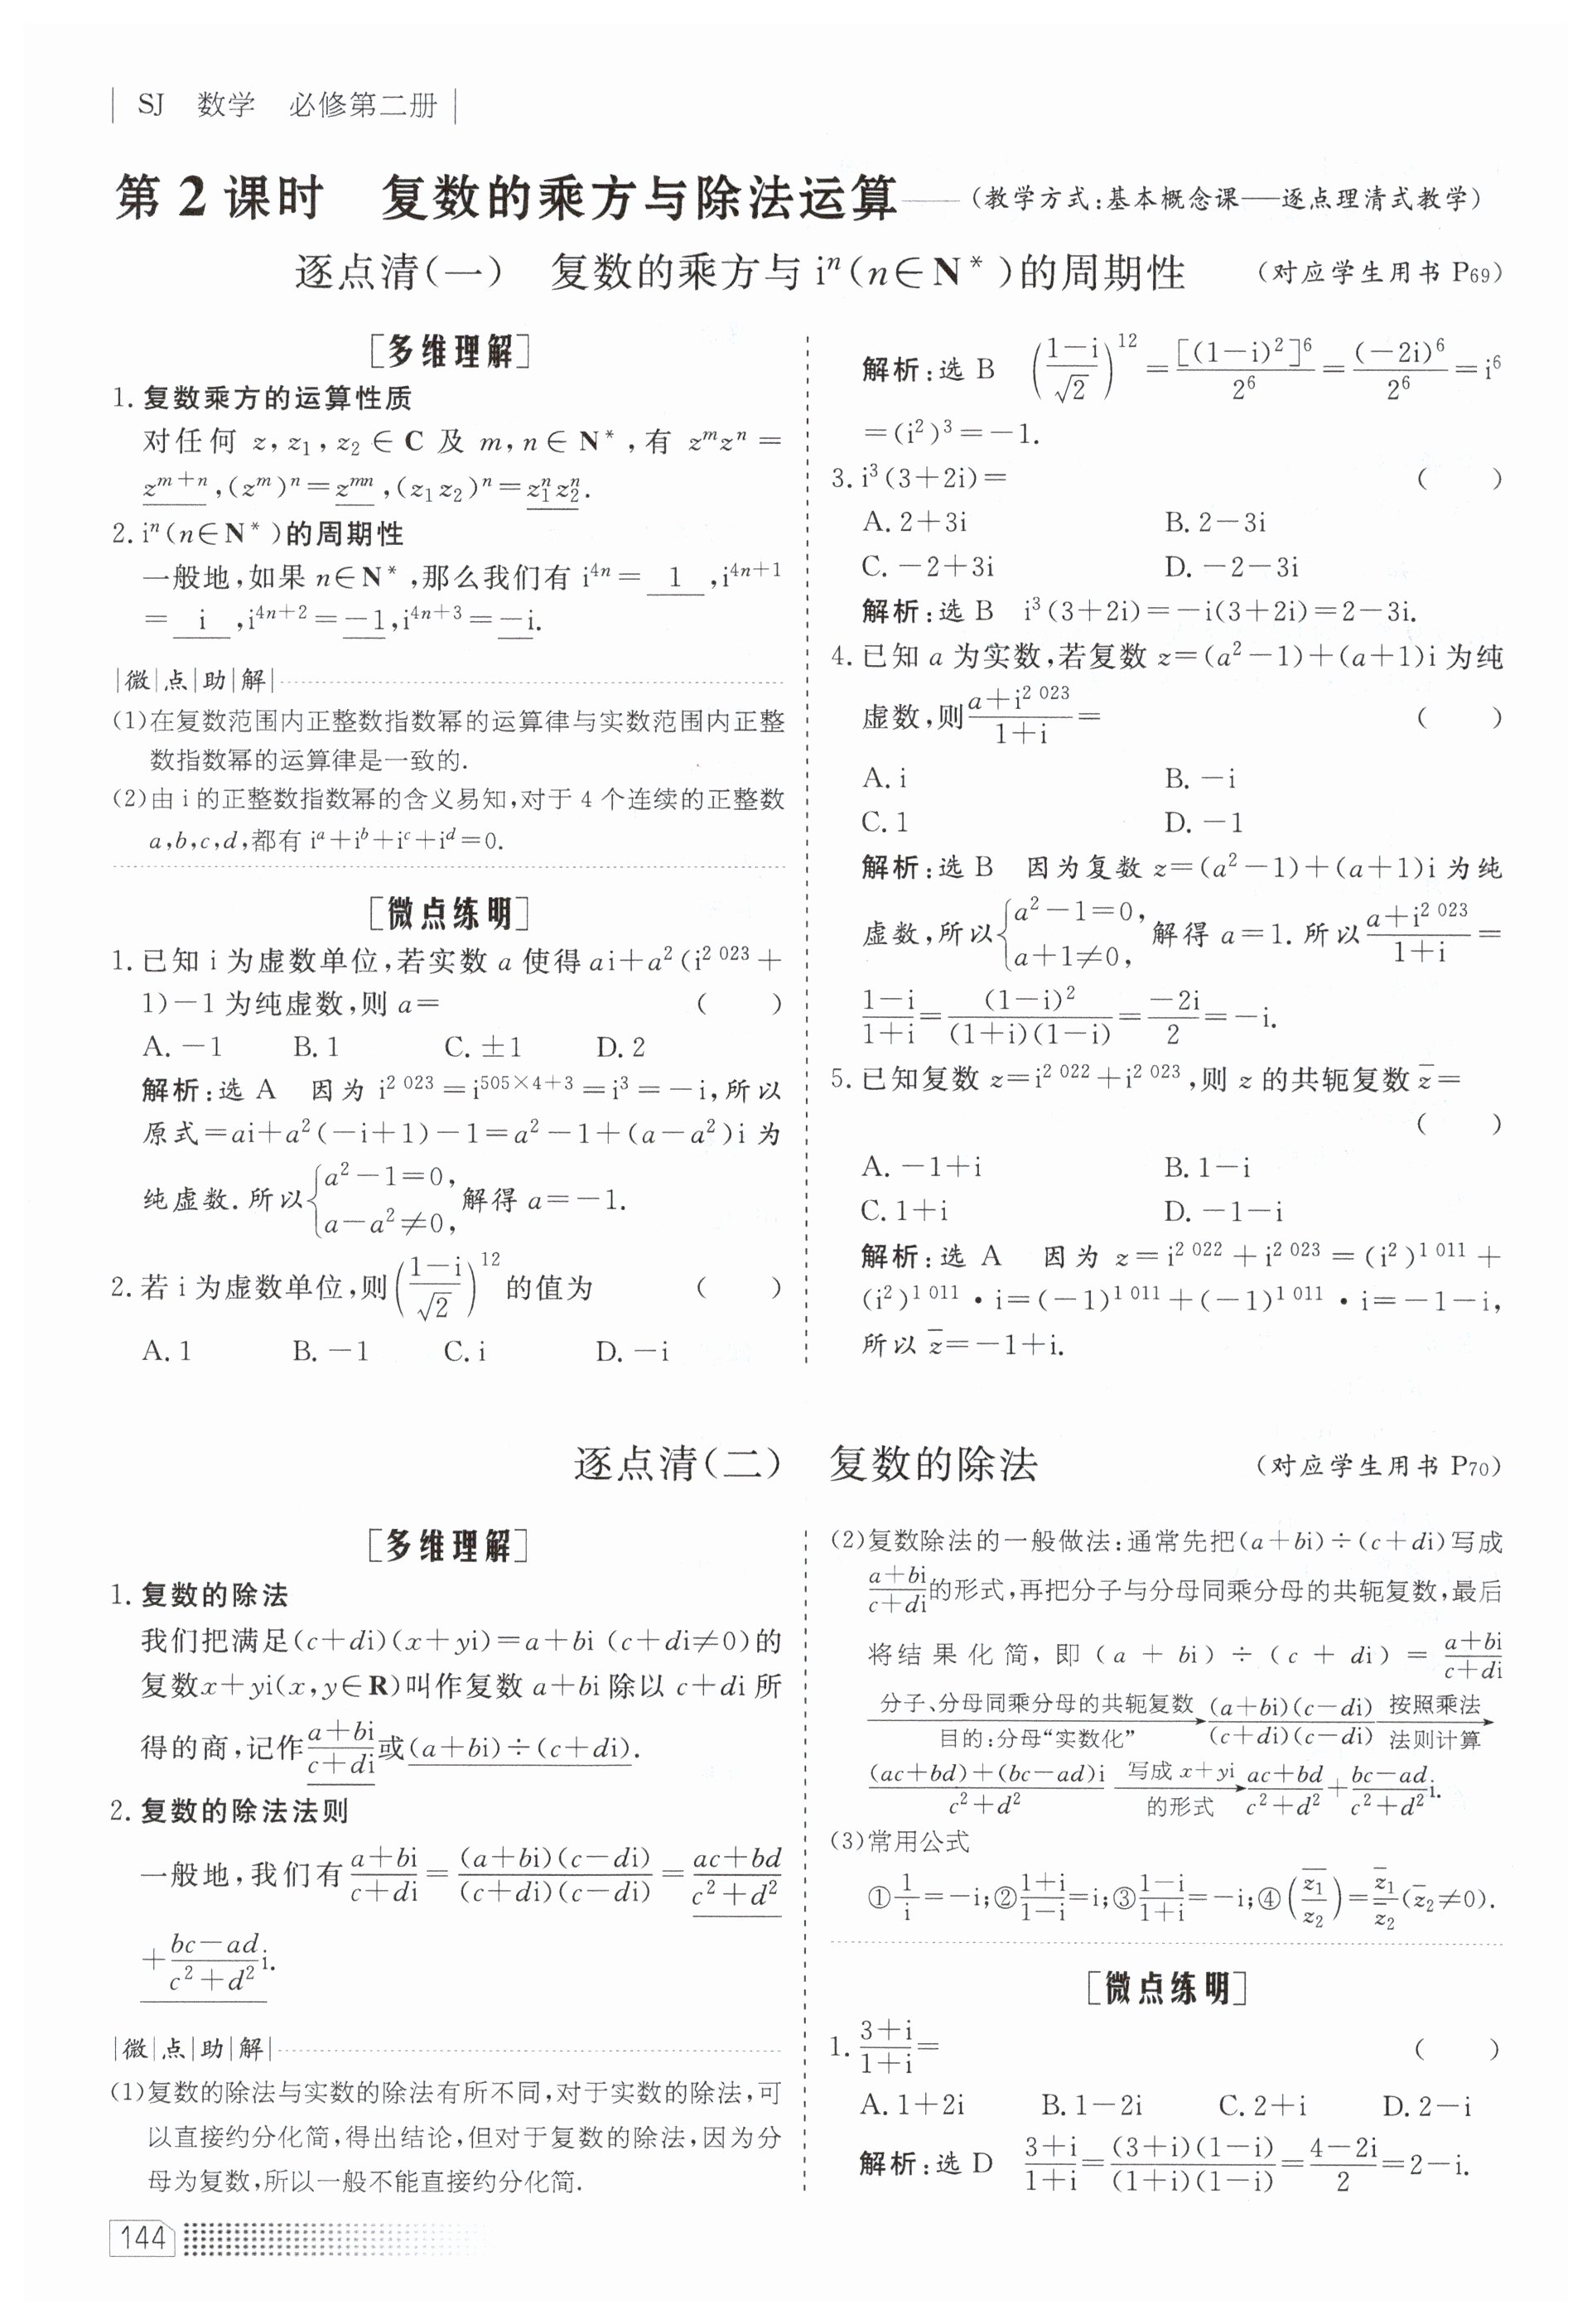 SJ 数学 必修第二册
第2课时 复数的乘方与除法运算——(教学方式:基本概念课——逐点理清式教学)
逐点清(一) 复数的乘方与 iⁿ(n∈N*)的周期性 (对应学生用书 P69)
[多维理解]
1. 复数乘方的运算性质
对任何 z,z₁,z₂∈C 及 m,n∈N*,有 z^m z^n=
z^{m+n},(z^m)^n=z^{mn},(z₁z₂)^n=z₁^n z₂^n.
2. iⁿ(n∈N*)的周期性
一般地,如果 n∈N*,那么我们有 i^{4n}= 1 ,i^{4n+1}
= i ,i^{4n+2}=-1,i^{4n+3}=-i.
|微|点|助|解|
(1)在复数范围内正整数指数幂的运算律与实数范围内正整
数指数幂的运算律是一致的.
(2)由 i 的正整数指数幂的含义易知,对于 4 个连续的正整数
a,b,c,d,都有 i^a+i^b+i^c+i^d=0.
[微点练明]
1. 已知 i 为虚数单位,若实数 a 使得 ai+a²(i^{2 023}+
1)-1 为纯虚数,则 a= ( )
A. -1 B. 1 C. ±1 D. 2
解析:选 A 因为 i^{2 023}=i^{505×4+3}=i³=-i,所以
原式=ai+a²(-i+1)-1=a²-1+(a-a²)i 为
纯虚数.所以{a²-1=0, a-a²≠0, 解得 a=-1.
2. 若 i 为虚数单位,则((1-i)/√2)^{12}的值为 ( )
A. 1 B. -1 C. i D. -i
解析:选 B ((1-i)/√2)^{12}=[(1-i)²]⁶/2⁶=(-2i)⁶/2⁶=i⁶
=(i²)³=-1.
3. i³(3+2i)= ( )
A. 2+3i B. 2-3i
C. -2+3i D. -2-3i
解析:选 B i³(3+2i)=-i(3+2i)=2-3i.
4. 已知 a 为实数,若复数 z=(a²-1)+(a+1)i 为纯
虚数,则(a+i^{2 023})/(1+i)= ( )
A. i B. -i
C. 1 D. -1
解析:选 B 因为复数 z=(a²-1)+(a+1)i 为纯
虚数,所以{a²-1=0, a+1≠0, 解得 a=1. 所以(a+i^{2 023})/(1+i)=
(1-i)/(1+i)=(1-i)²/((1+i)(1-i))=-2i/2=-i.
5. 已知复数 z=i^{2 022}+i^{2 023},则 z 的共轭复数 z̄=
( )
A. -1+i B. 1-i
C. 1+i D. -1-i
解析:选 A 因为 z=i^{2 022}+i^{2 023}=(i²)^{1 011}+
(i²)^{1 011}·i=(-1)^{1 011}+(-1)^{1 011}·i=-1-i,
所以 z̄=-1+i.
逐点清(二) 复数的除法 (对应学生用书 P70)
[多维理解]
1. 复数的除法
我们把满足(c+di)(x+yi)=a+bi (c+di≠0)的
复数x+yi(x,y∈R)叫作复数 a+bi 除以 c+di 所
得的商,记作(a+bi)/(c+di)或(a+bi)÷(c+di).
2. 复数的除法法则
一般地,我们有(a+bi)/(c+di)=((a+bi)(c-di))/((c+di)(c-di))=(ac+bd)/(c²+d²)
+(bc-ad)/(c²+d²)i.
|微|点|助|解|
(1)复数的除法与实数的除法有所不同,对于实数的除法,可
以直接约分化简,得出结论,但对于复数的除法,因为分
母为复数,所以一般不能直接约分化简.
(2)复数除法的一般做法:通常先把(a+bi)÷(c+di)写成
(a+bi)/(c+di)的形式,再把分子与分母同乘分母的共轭复数,最后
将结果化简,即(a+bi)÷(c+di)=(a+bi)/(c+di)
分子、分母同乘分母的共轭复数 目的:分母“实数化” → ((a+bi)(c-di))/((c+di)(c-di)) 按照乘法 法则计算 →
((ac+bd)+(bc-ad)i)/(c²+d²) 写成 x+yi 的形式 → (ac+bd)/(c²+d²)+(bc-ad)/(c²+d²)i.
(3)常用公式
①1/i=-i;②(1+i)/(1-i)=i;③(1-i)/(1+i)=-i;④\overline{(z₁/z₂)}=z̄₁/z̄₂(z̄₂≠0).
[微点练明]
1. (3+i)/(1+i)= ( )
A. 1+2i B. 1-2i C. 2+i D. 2-i
解析:选 D (3+i)/(1+i)=((3+i)(1-i))/((1+i)(1-i))=(4-2i)/2=2-i.
144